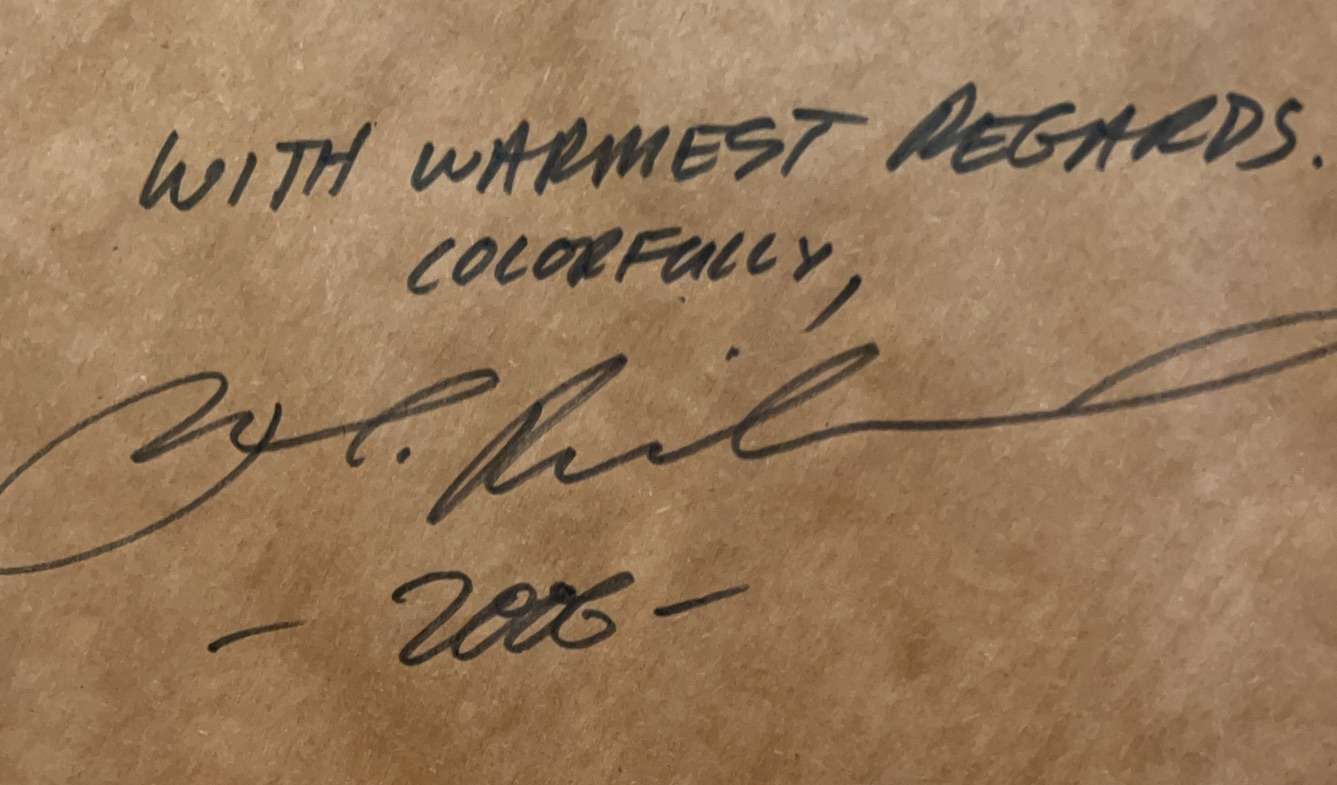 WITH WARMEST REGARDS.
COLORFULLY,
- 2006 -